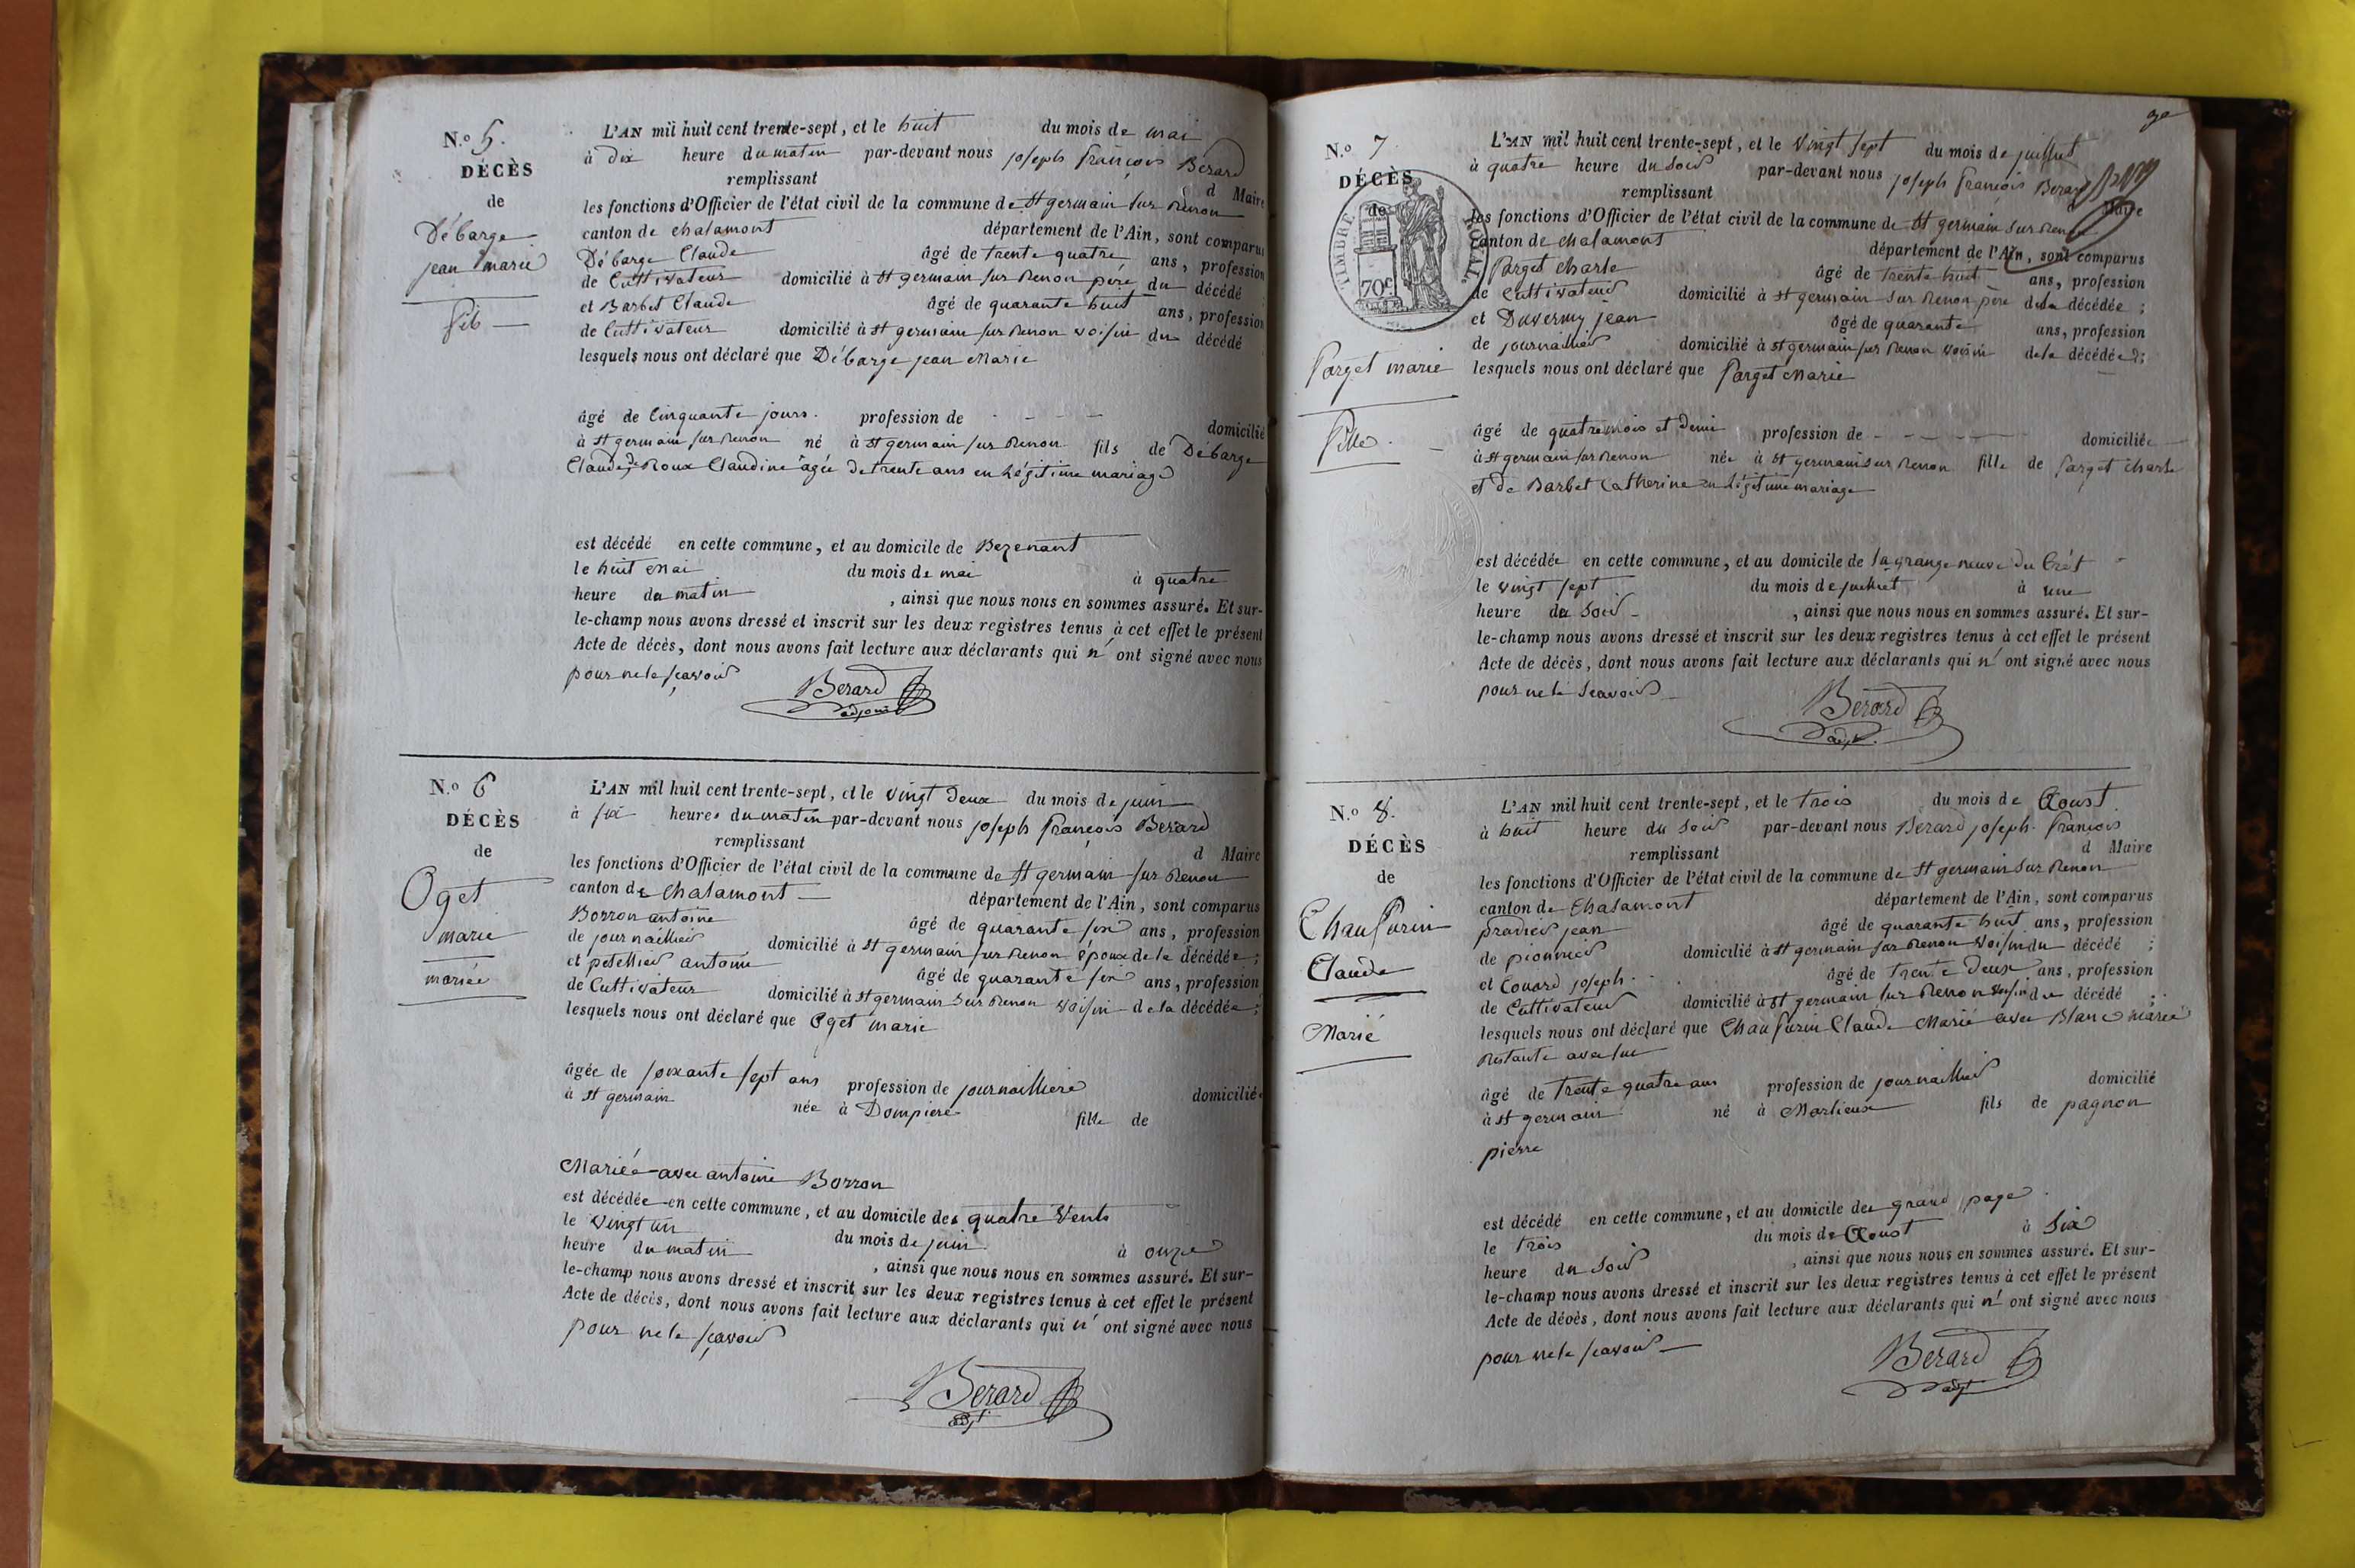 N.o 5.
DÉCÈS
de
Débarge
jean marie
fils
L'AN mil huit cent trente-sept, et le huit du mois de mai
à dix heure du matin par-devant nous joseph françois Bérard
remplissant d Maire
les fonctions d'Officier de l'état civil de la commune de St germain sur Renon
canton de chalamont département de l'Ain, sont comparus
Débarge Claude âgé de trente quatre ans, profession
de Cultivateur domicilié à St germain sur Renon père du décédé
et Barbet Claude âgé de quarante huit ans, profession
de Cultivateur domicilié à st germain sur Renon voisin du décédé
lesquels nous ont déclaré que Débarge jean Marie
âgé de Cinquante jours. profession de - - - - domicilié
à st germain sur renon né à st germain sur Renon fils de Débarge
Claude, de Roux Claudine agée de trente ans en Légitime mariage
est décédé en cette commune, et au domicile de Bezenant
le huit Mai du mois de mai à quatre
heure du matin , ainsi que nous nous en sommes assuré. Et sur-
le-champ nous avons dressé et inscrit sur les deux registres tenus à cet effet le présent
Acte de décès, dont nous avons fait lecture aux déclarants qui n' ont signé avec nous
pour ne le sçavoir
Berard
adjoint
N.o 6
DÉCÈS
de
Oget
marie
mariée
L'AN mil huit cent trente-sept, et le vingt Deux du mois de juin
à six heures du matin par-devant nous joseph françois Berard
remplissant d Maire
les fonctions d'Officier de l'état civil de la commune de St germain sur Renon
canton de Chalamont département de l'Ain, sont comparus
Borron antoine âgé de quarante six ans, profession
de journaillier domicilié à st germain sur Renon époux de la décédée;
et petellier antoine âgé de quarante six ans, profession
de Cultivateur domicilié à st germain sur Renon voisin de la décédée;
lesquels nous ont déclaré que Oget marie
âgée de soixante sept ans profession de journailliere domiciliée
à st germain née à Dompiere fille de
Mariée avec antoine Borron
est décédée en cette commune, et au domicile des quatre Vents
le vingt un du mois de juin à onze
heure du matin , ainsi que nous nous en sommes assuré. Et sur-
le-champ nous avons dressé et inscrit sur les deux registres tenus à cet effet le présent
Acte de décès, dont nous avons fait lecture aux déclarants qui n' ont signé avec nous
pour ne le sçavoir
Berard
adjt
N.o 7
DÉCÈS
de
TIMBRE ROYAL
70c
Parget marie
fille
L'AN mil huit cent trente-sept, et le vingt sept du mois de juillet
à quatre heure du soir par-devant nous joseph françois Berard
remplissant d Maire
les fonctions d'Officier de l'état civil de la commune de St germain sur Renon
canton de chalamont département de l'Ain, sont comparus
Parget charle âgé de trente huit ans, profession
de Cultivateur domicilié à st germain sur Renon père de la décédée;
et Duverny jean âgé de quarante ans, profession
de journaillier domicilié à st germain sur Renon voisin de la décédée;
lesquels nous ont déclaré que Parget Marie
âgé de quatre mois et demi profession de - - - - domiciliée
à st germain sur Renon née à st germain sur Renon fille de Parget charle
et de Barbet Catherine en Légitime mariage
est décédée en cette commune, et au domicile de la grange neuve du Crét
le vingt sept du mois de juillet à une
heure du soir , ainsi que nous nous en sommes assuré. Et sur-
le-champ nous avons dressé et inscrit sur les deux registres tenus à cet effet le présent
Acte de décès, dont nous avons fait lecture aux déclarants qui n' ont signé avec nous
pour ne le sçavoir
Berard
adjt.
N.o 8.
DÉCÈS
de
Chanfurin
Claude
Marié
L'AN mil huit cent trente-sept, et le trois du mois de Aoust
à huit heure du soir par-devant nous Berard joseph françois
remplissant d Maire
les fonctions d'Officier de l'état civil de la commune de St germain sur Renon
canton de Chalamont département de l'Ain, sont comparus
pradier jean âgé de quarante huit ans, profession
de pionnier domicilié à st germain sur Renon voisin du décédé;
et Couard joseph. âgé de trente Deux ans, profession
de Cultivateur domicilié à st germain sur Renon voisin du décédé;
lesquels nous ont déclaré que Chanfurin Claude Marié avec Blanc marie
Restante avec lui
âgé de trente quatre ans profession de journaillier domicilié
à st germain né à Marlieux fils de pagnon
pierre
est décédé en cette commune, et au domicile de grand page
le trois du mois de Aoust à Six
heure du soir , ainsi que nous nous en sommes assuré. Et sur-
le-champ nous avons dressé et inscrit sur les deux registres tenus à cet effet le présent
Acte de décès, dont nous avons fait lecture aux déclarants qui n' ont signé avec nous
pour ne le sçavoir
Berard
adjt